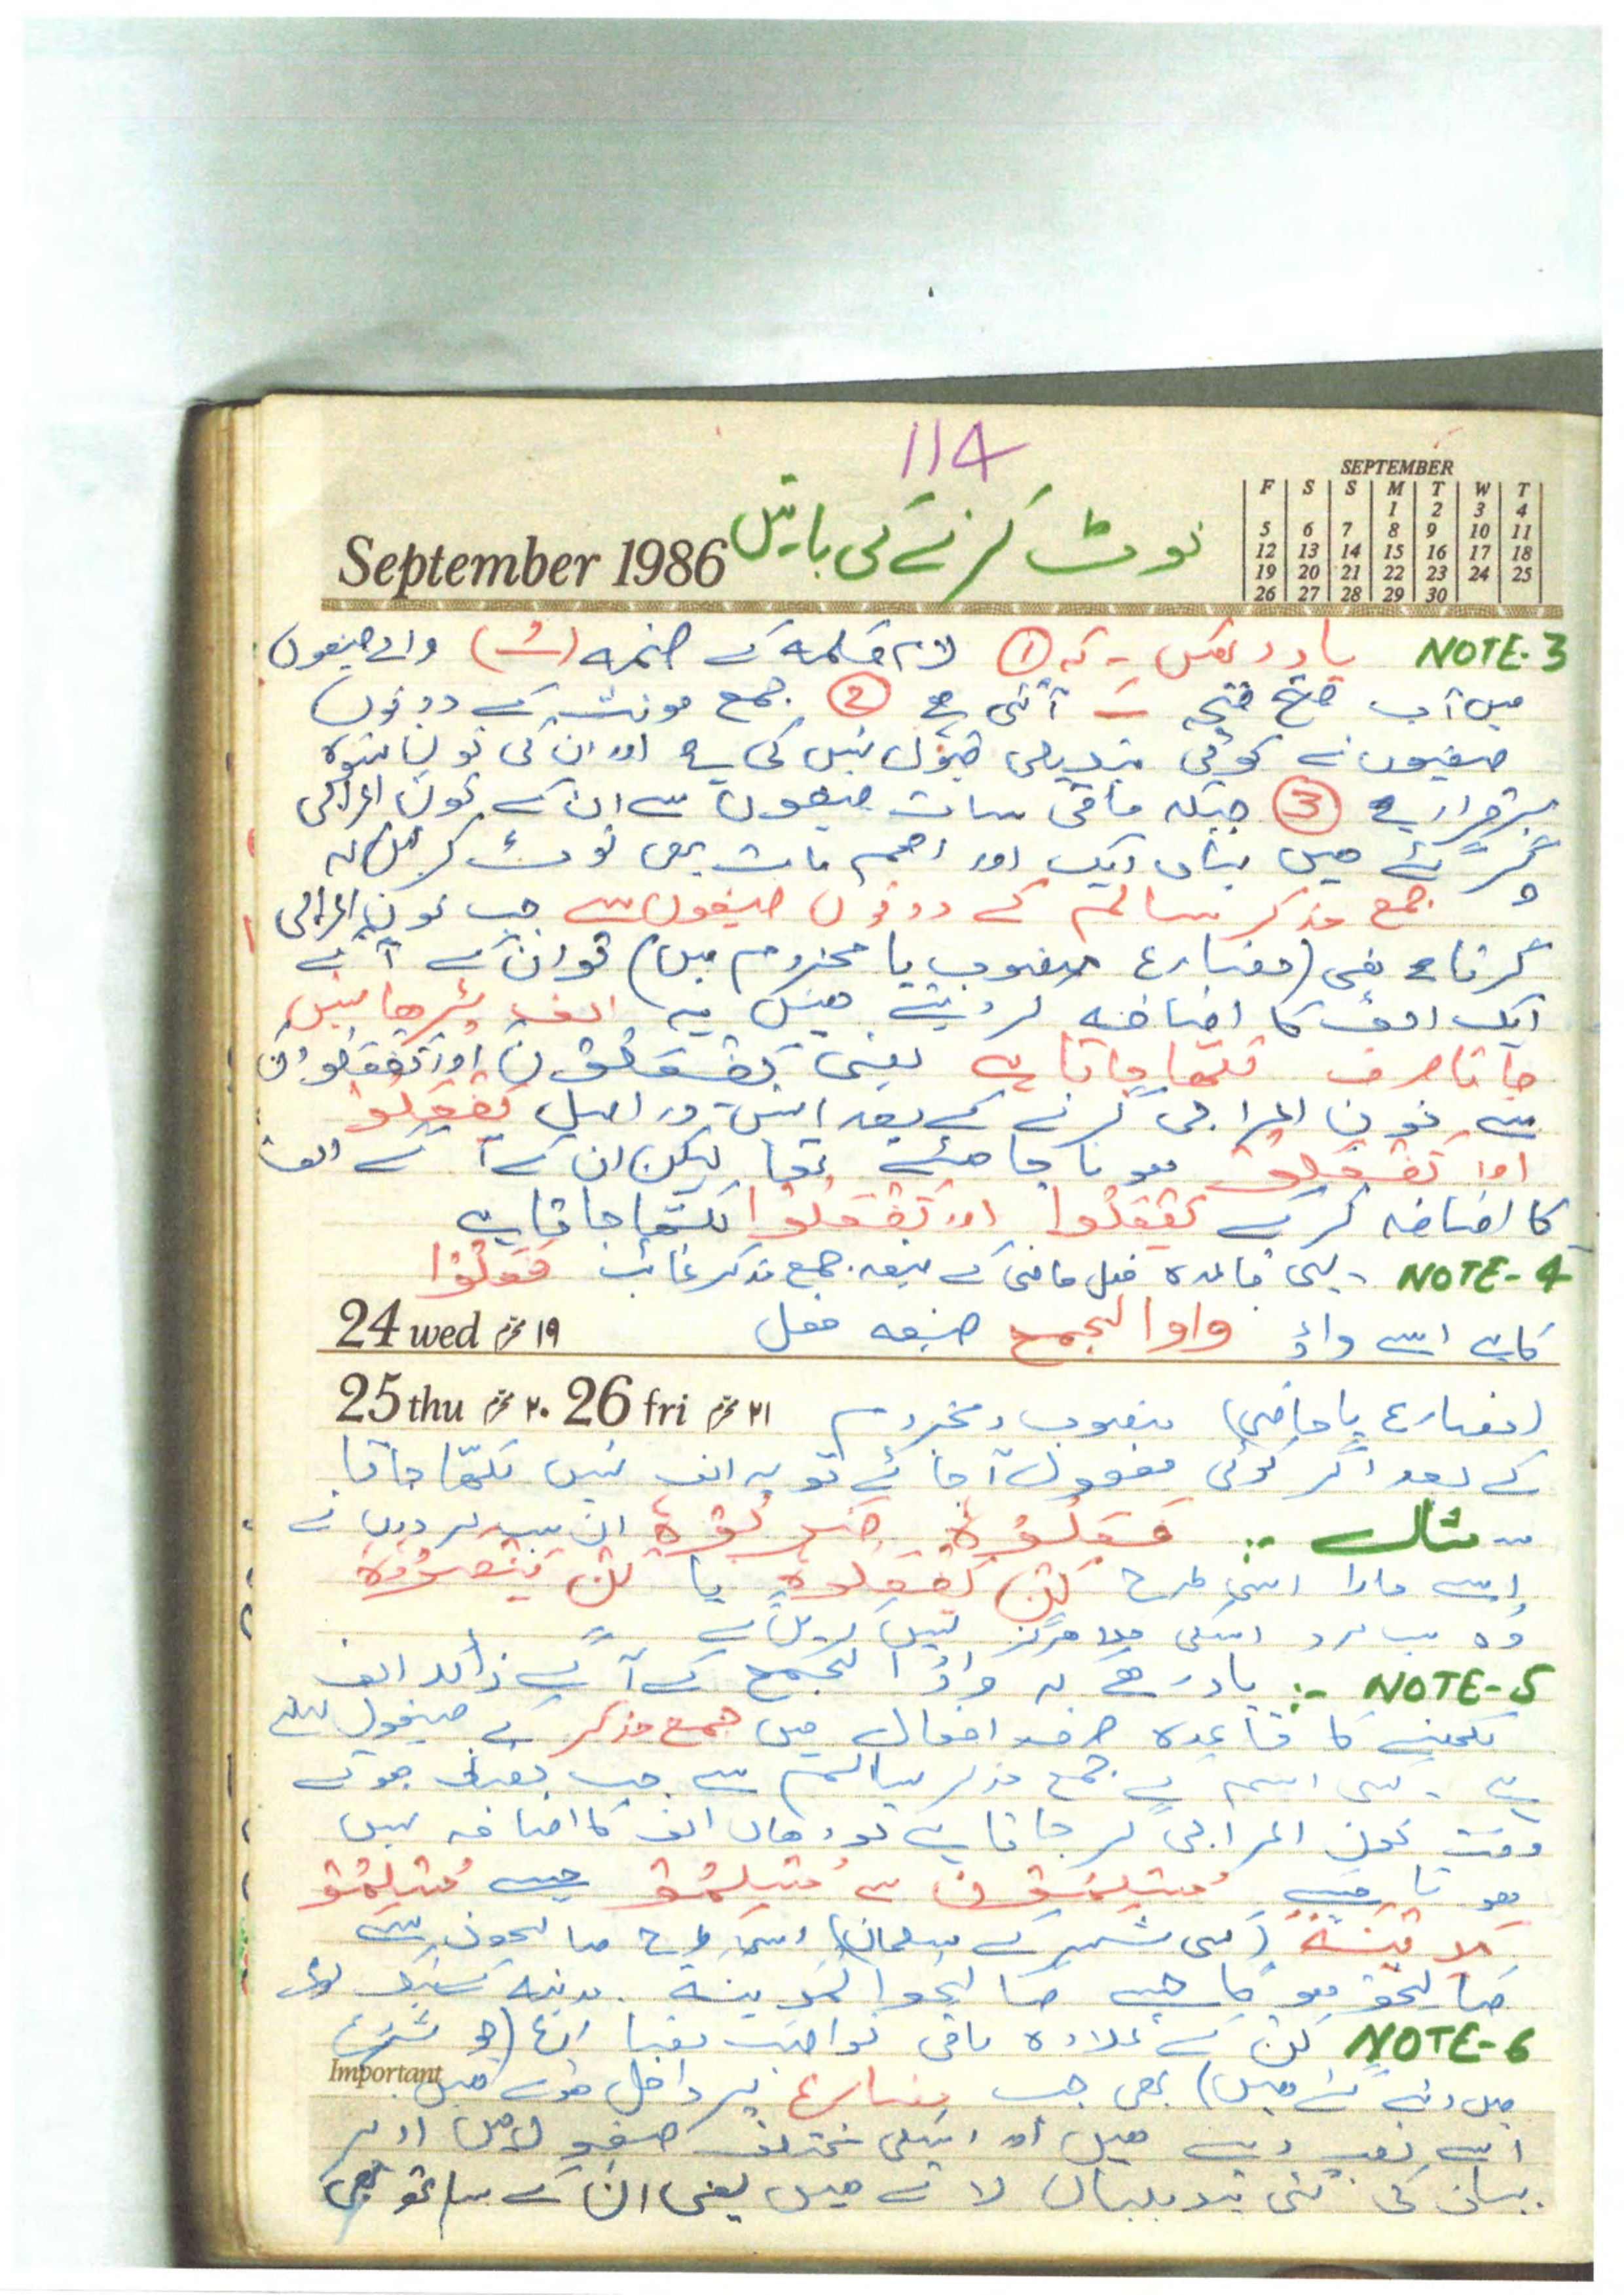 114
نوٹ کرنے کی باتیں
September 1986
SEPTEMBER
F S S M T W T
1 2 3 4
5 6 7 8 9 10 11
12 13 14 15 16 17 18
19 20 21 22 23 24 25
26 27 28 29 30
NOTE-3 یاد رکھیں - کہ ① لام کلمہ کے ضمہ (ـُ) والے صیغوں
میں اب فتحہ ـَ آئی ہے ② جمع مونث کے دونوں
صیغوں نے کوئی تبدیلی قبول نہیں کی ہے اور ان کی نون نسوہ
برقرار ہے ③ جبکہ باقی سات صیغوں سے ان کے نون اعرابی
گر گئے ہیں یہاں ایک اور اہم بات بھی نوٹ کر لیں کہ
جمع مذکر سالم کے دونوں صیغوں سے جب نون اعرابی
گرتا ہے یعنی (مضارع منصوب یا مجزوم میں) تو ان کے آگے
ایک الف کا اضافہ کر دیتے ہیں یہ الف پڑھا نہیں
جاتا صرف لکھا جاتا ہے یعنی یَفْعَلُوْنَ اور تَفْعَلُوْنَ
سے نون اعرابی گرنے کے بعد انہیں دراصل یَفْعَلُوْ
اور تَفْعَلُوْ ہونا چاہئے تھا لیکن ان کے آگے الف
کا اضافہ کر کے یَفْعَلُوْا اور تَفْعَلُوْا لکھا جاتا ہے
NOTE-4 - یہی قاعدہ فعل ماضی کے صیغہ جمع مذکر غائب فَعَلُوْا
کا ہے اسے واؤ واو الجمع صیغہ فعل
24 wed ۱۹ محرم
25 thu ۲۰ محرم 26 fri ۲۱ محرم
(مضارع یا ماضی) منصوب و مجزوم
کے بعد اگر کوئی مفعول آ جائے تو یہ الف نہیں لکھا جاتا
مثال :- فَعَلُوْہُ ضَرَبُوْہُ ان سب مردوں نے
اسے مارا اسی طرح لَنْ یَفْعَلُوْہُ یا لَنْ یَنْصُرُوْہُ
وہ سب مرد اسکی مدد ہرگز نہیں کریں گے
NOTE-5 :- یاد رہے کہ واوُ الجمع کے آگے زائد الف
لکھنے کا قاعدہ صرف افعال میں جمع مذکر کے صیغوں کیلئے
ہے - کسی اسم کے جمع مذکر سالم سے جب مضاف ہوتے
وقت نون اعرابی گر جاتا ہے تو وہاں الف کا اضافہ نہیں
ہوتا جیسے مُسْلِمُوْنَ سے مُسْلِمُوْ جیسے مُسْلِمُوْ
مَدِیْنَۃٍ (کسی شہر کے مسلمان) اسی طرح صالحون سے
صَالِحُوْ ہو گا جیسے صَالِحُوا الْمَدِیْنَۃِ مدینہ کے نیک لوگ
NOTE-6 لَنْ کے علاوہ باقی نواصب مضارع (جو شروع
Important
میں دئے گئے ہیں) بھی جب مضارع پر داخل ہوتے ہیں
اسے نصب دیتے ہیں اور اسکی مختلف صیغوں میں اوپر
بیان کی گئی تبدیلیاں لاتے ہیں یعنی ان کے ساتھ بھی